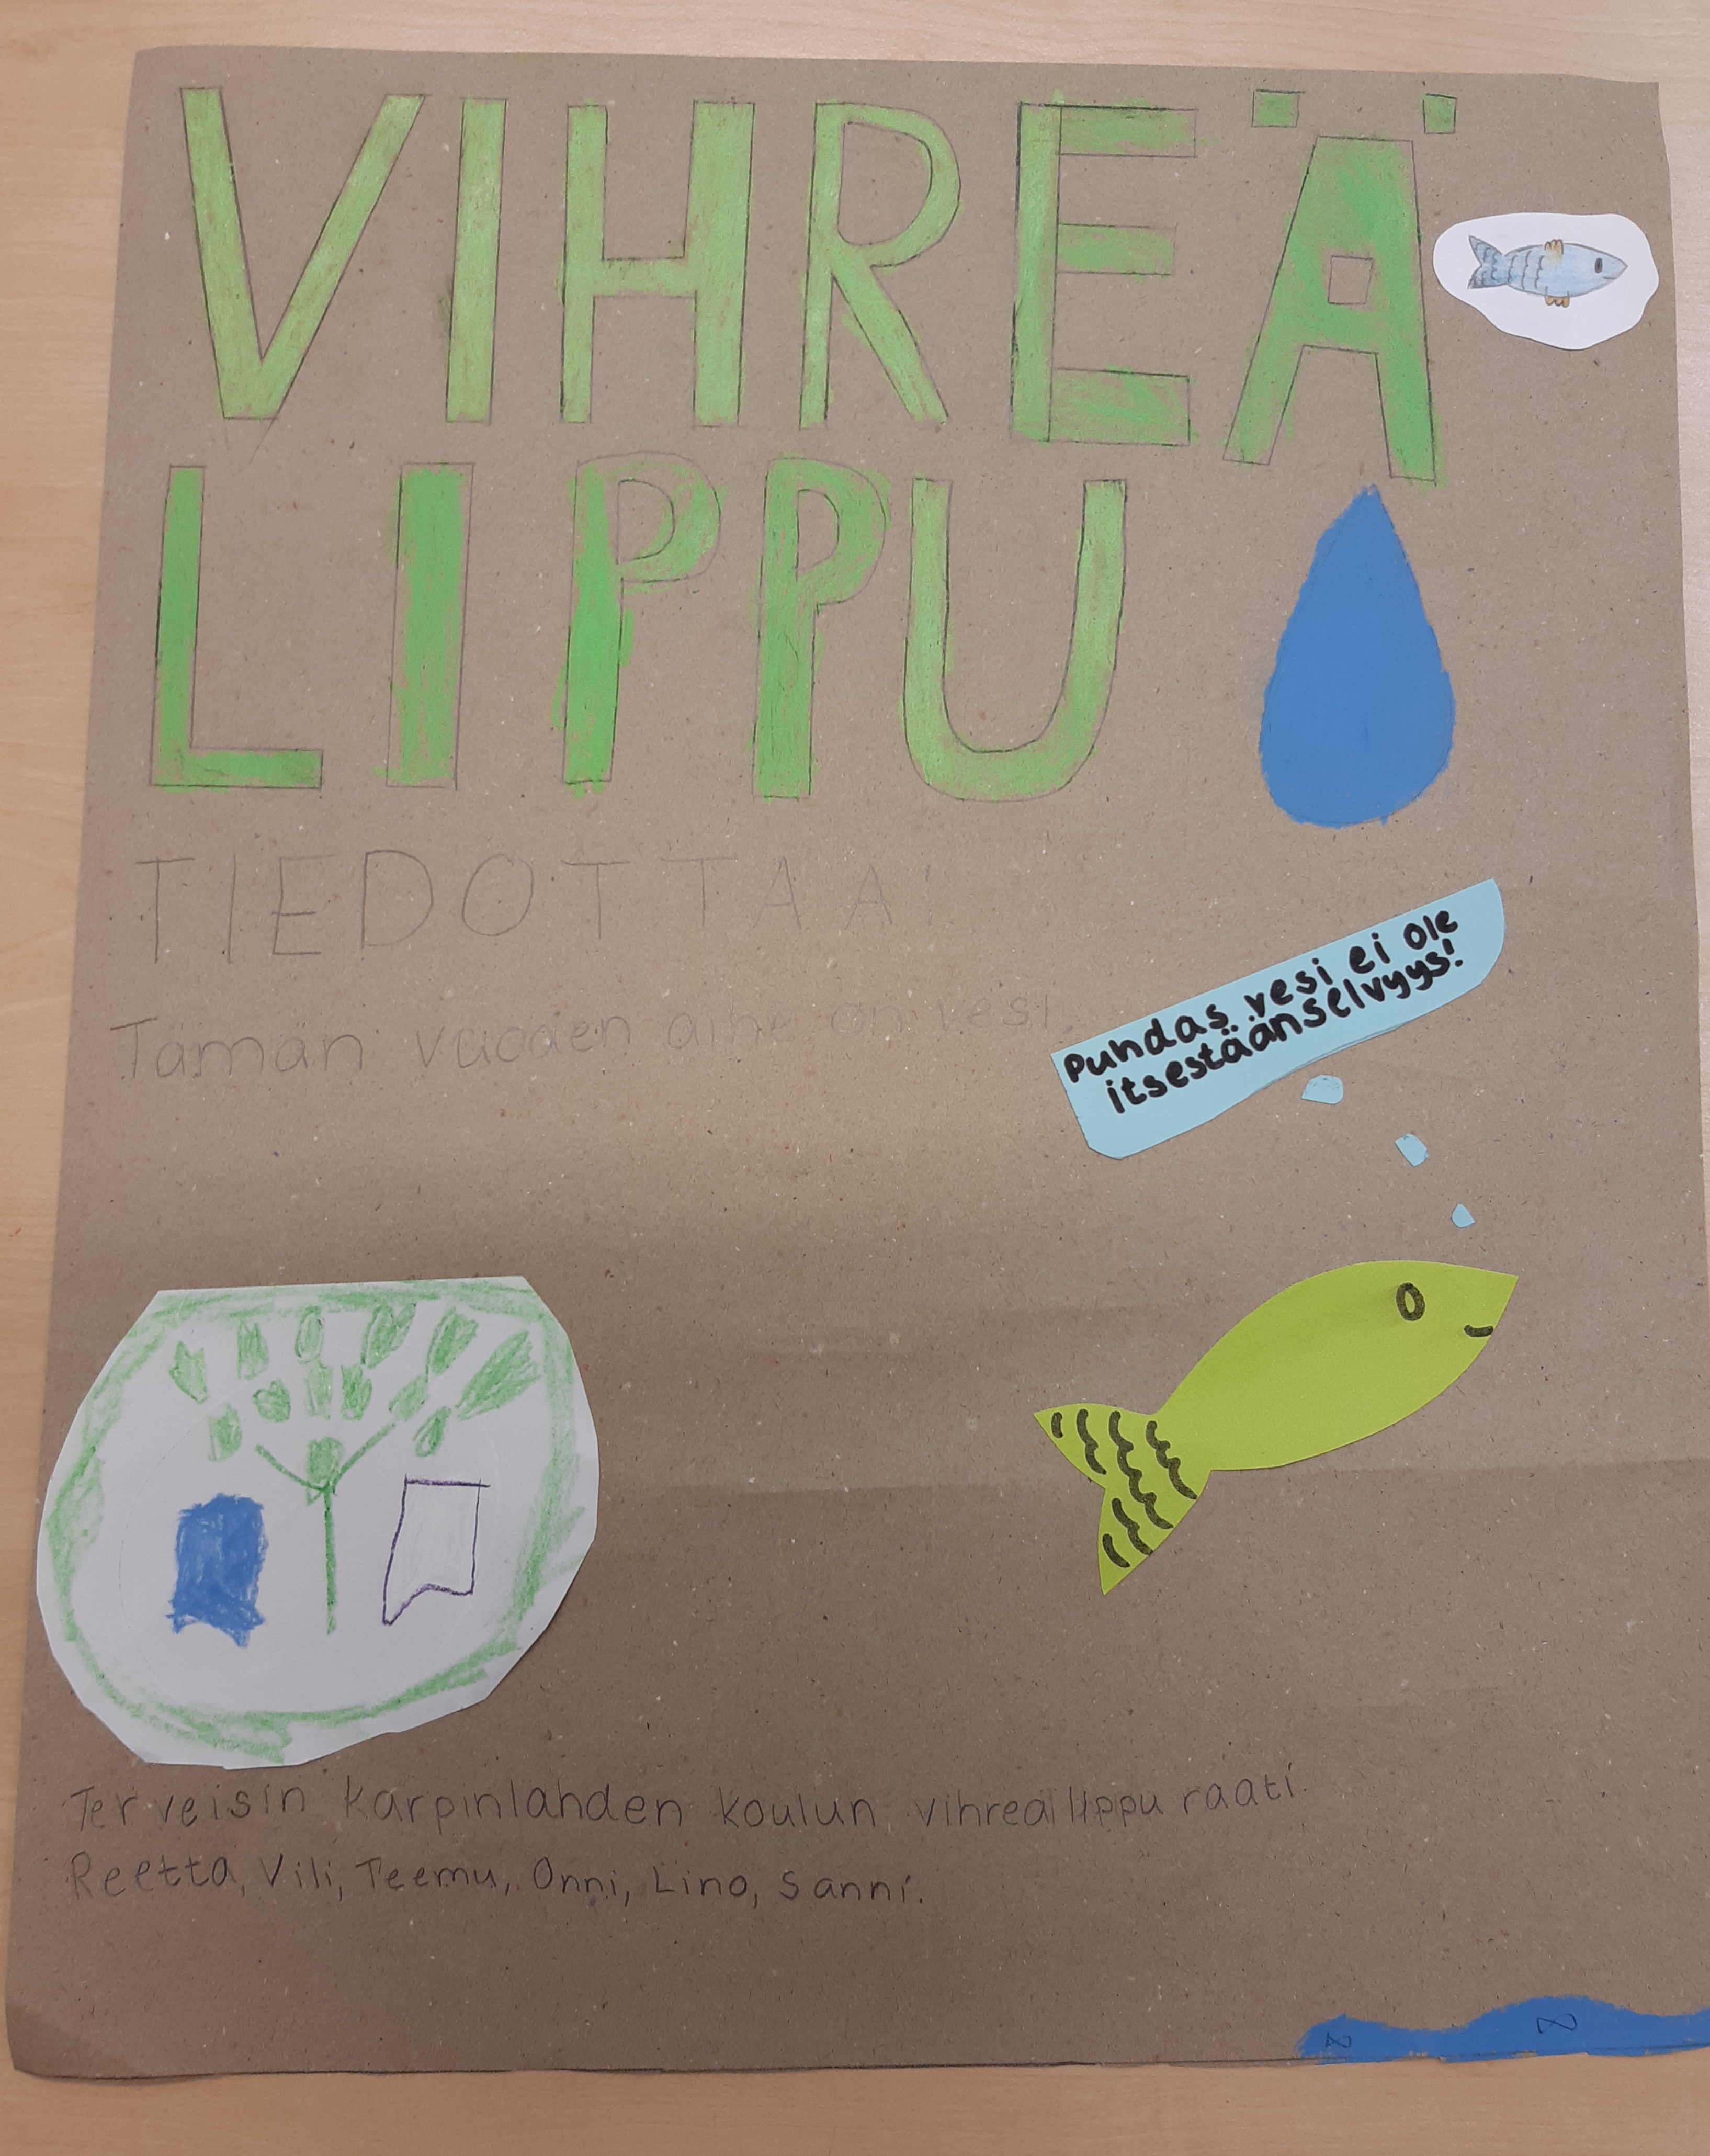 VIHREÄ
LIPPU
TIEDOTTAA!
Tämän vuoden aihe on vesi.
Puhdas vesi ei ole
itsestäänselvyys!
Terveisin Karpinlahden koulun vihreälippu raati
Reetta, Vili, Teemu, Onni, Lino, Sanni.